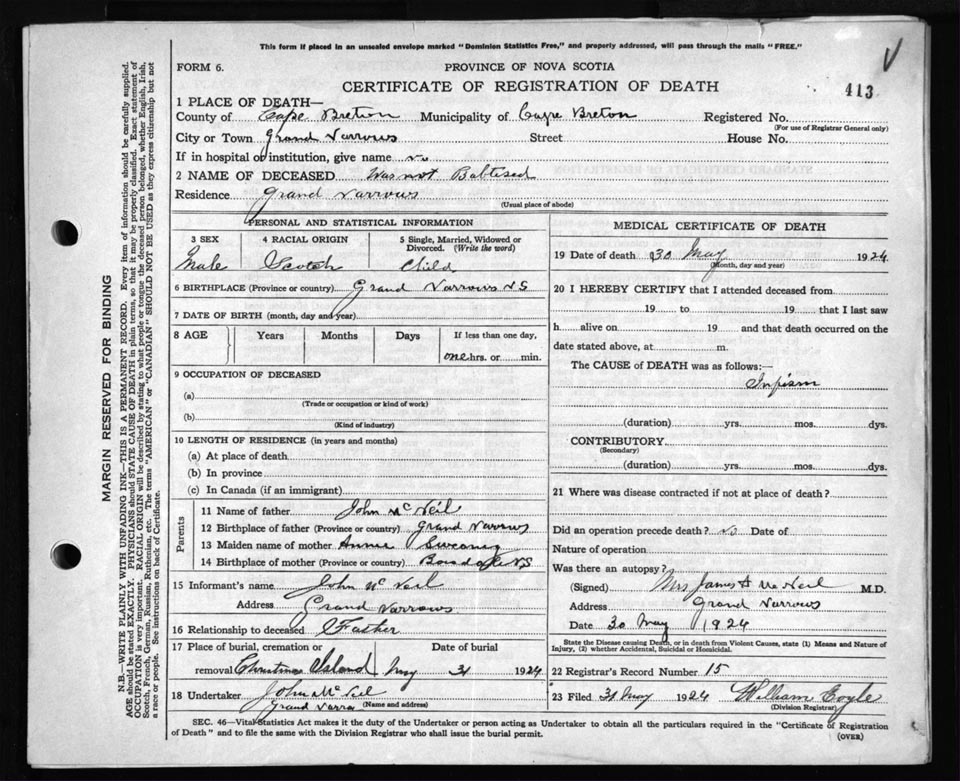 This form if placed in an unsealed envelope marked "Dominion Statistics Free," and properly addressed, will pass through the mails "FREE."
FORM 6.
PROVINCE OF NOVA SCOTIA
CERTIFICATE OF REGISTRATION OF DEATH
413
1 PLACE OF DEATH—
County of Cape Breton Municipality of Cape Breton Registered No.
(For use of Registrar General only)
City or Town Grand Narrows Street House No.
If in hospital or institution, give name no
2 NAME OF DECEASED Was not Babtised
Residence Grand Narrows
(Usual place of abode)
PERSONAL AND STATISTICAL INFORMATION
3 SEX 4 RACIAL ORIGIN 5 Single, Married, Widowed or Divorced. (Write the word)
Male Scotch Child
6 BIRTHPLACE (Province or country) Grand Narrows N S
7 DATE OF BIRTH (month, day and year)
8 AGE Years Months Days If less than one day,
one hrs. or min.
9 OCCUPATION OF DECEASED
(a)
(Trade or occupation or kind of work)
(b)
(Kind of industry)
10 LENGTH OF RESIDENCE (in years and months)
(a) At place of death
(b) In province
(c) In Canada (if an immigrant)
Parents
11 Name of father John McNeil
12 Birthplace of father (Province or country) Grand Narrows
13 Maiden name of mother Annie Sweeney
14 Birthplace of mother (Province or country) Boisdale N S
15 Informant's name John McNeil
Address Grand Narrows
16 Relationship to deceased Father
17 Place of burial, cremation or Date of burial
removal Christmas Island May 31 1924
18 Undertaker John McNeil
Grand Narro (Name and address)
MEDICAL CERTIFICATE OF DEATH
19 Date of death 30 May 1924
(Month, day and year)
20 I HEREBY CERTIFY that I attended deceased from
19 to 19 that I last saw
h alive on 19 and that death occurred on the
date stated above, at m.
The CAUSE of DEATH was as follows:—
(duration) yrs. mos. dys.
CONTRIBUTORY
(Secondary)
(duration) yrs. mos. dys.
21 Where was disease contracted if not at place of death?
Did an operation precede death? No Date of
Nature of operation
Was there an autopsy?
(Signed) Mrs James A McNeil M.D.
Address Grand Narrows
Date 30 May 1924
State the Disease causing Death, or in death from Violent Causes, state (1) Means and Nature of
Injury, (2) whether Accidental, Suicidal or Homicidal.
22 Registrar's Record Number 15
23 Filed 31 May 1924 William Coyle
(Division Registrar)
SEC. 46—Vital Statistics Act makes it the duty of the Undertaker or person acting as Undertaker to obtain all the particulars required in the "Certificate of Registration
of Death" and to file the same with the Division Registrar who shall issue the burial permit.
(OVER)
MARGIN RESERVED FOR BINDING
N.B.—WRITE PLAINLY WITH UNFADING INK—THIS IS A PERMANENT RECORD. Every item of information should be carefully supplied.
AGE should be stated EXACTLY. PHYSICIANS should STATE CAUSE OF DEATH in plain terms, so that it may be properly classified. Exact statement of
OCCUPATION is very important. RACIAL ORIGIN will be described by stating to what people or tongue the deceased person belonged, whether English, Irish,
Scotch, French, German, Russian, Ruthenian, etc. The terms "AMERICAN" or "CANADIAN" SHOULD NOT BE USED as they express citizenship but not
a race or people. See instructions on back of Certificate.